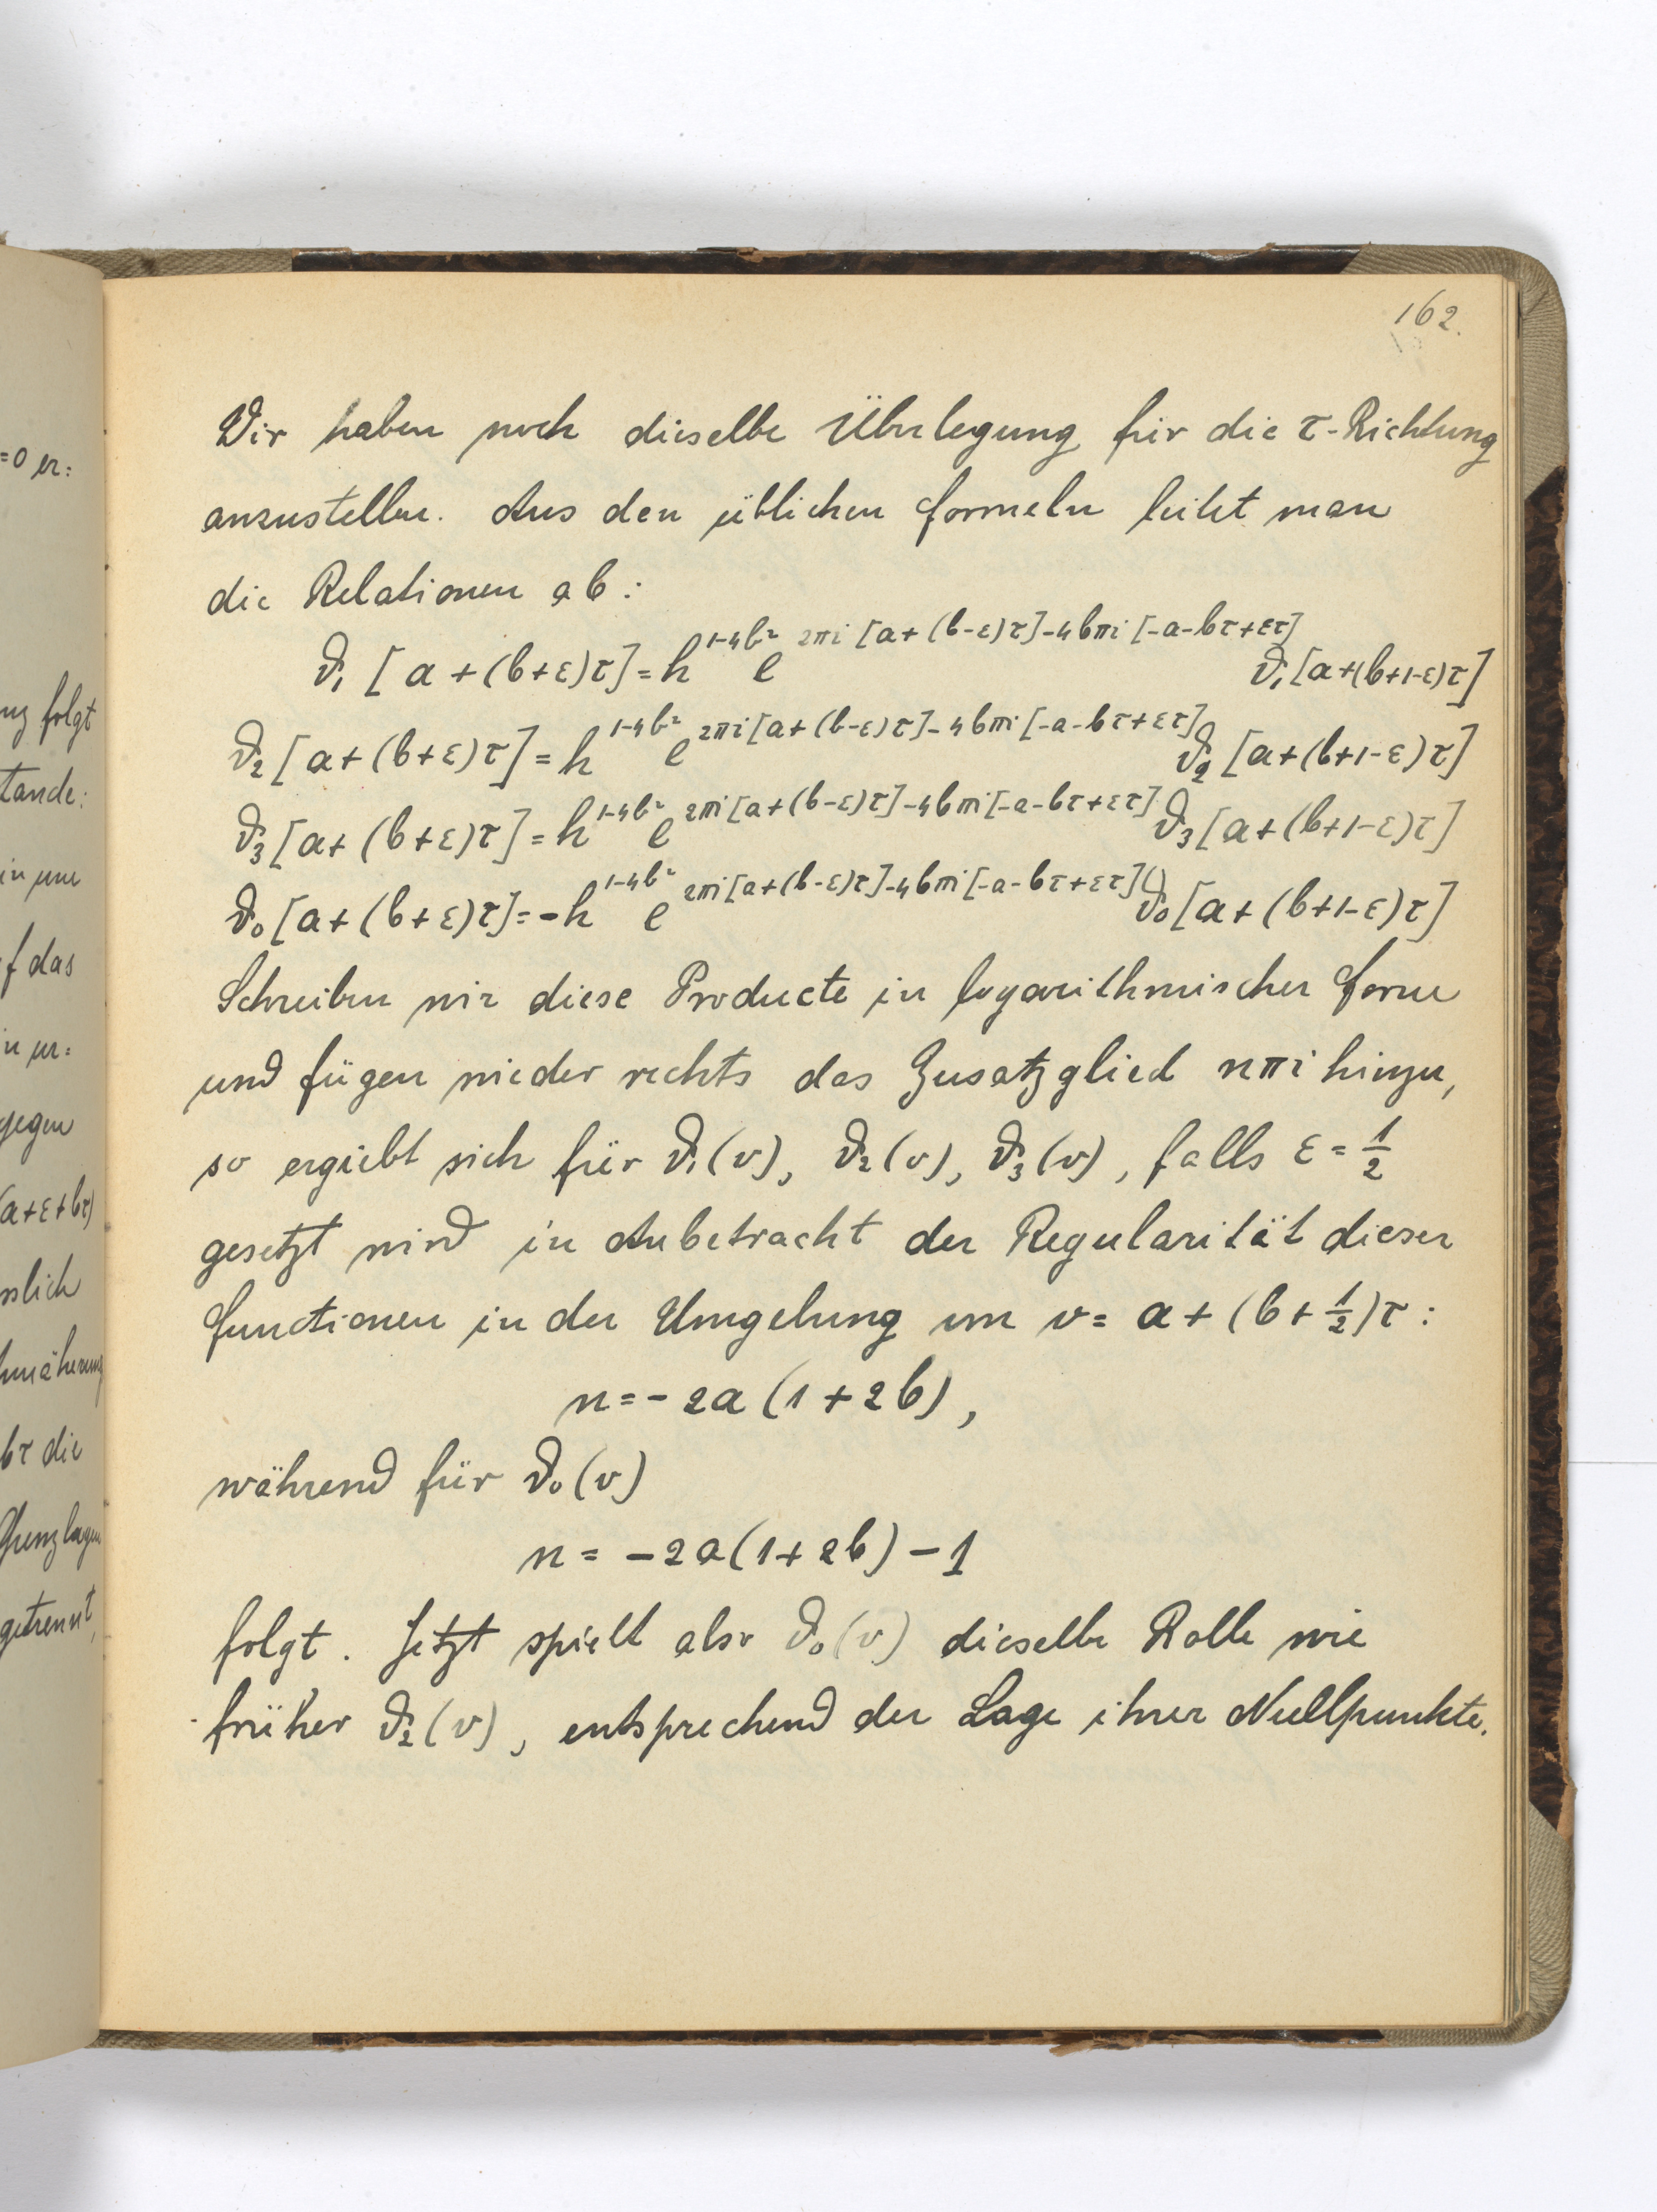 162.
=0 er:
Wir haben noch dieselbe Überlegung für die τ-Richtung
anzustellen. Aus den üblichen Formeln leitet man
die Relationen ab:
ϑ₁ [a+(b+ε)τ] = h^{1-4b²} e^{2πi[a+(b-ε)τ]-4bπi[-a-bτ+ετ]} ϑ₁[a+(b+1-ε)τ]
ϑ₂[a+(b+ε)τ] = h^{1-4b²} e^{2πi[a+(b-ε)τ]-4bπi[-a-bτ+ετ]} ϑ₂[a+(b+1-ε)τ]
ϑ₃[a+(b+ε)τ] = h^{1-4b²} e^{2πi[a+(b-ε)τ]-4bπi[-a-bτ+ετ]} ϑ₃[a+(b+1-ε)τ]
ϑ₀[a+(b+ε)τ] = -h^{1-4b²} e^{2πi[a+(b-ε)τ]-4bπi[-a-bτ+ετ]} ϑ₀[a+(b+1-ε)τ]
Schreiben wir diese Producte in logarithmischer Form
und fügen wieder rechts das Zusatzglied nπi hinzu,
so ergiebt sich für ϑ₁(v), ϑ₂(v), ϑ₃(v), falls ε = 1/2
gesetzt wird in Anbetracht der Regularität dieser
Functionen in der Umgebung um v = a + (b + 1/2)τ :
n = -2a(1+2b),
während für ϑ₀(v)
n = -2a(1+2b) - 1
folgt. Jetzt spielt also ϑ₀(v) dieselbe Rolle wie
früher ϑ₂(v), entsprechend der Lage ihrer Nullpunkte.
folgt
tande:
in
f das
gegen
(a+ε+bτ)
slich
bτ die
getrennt,